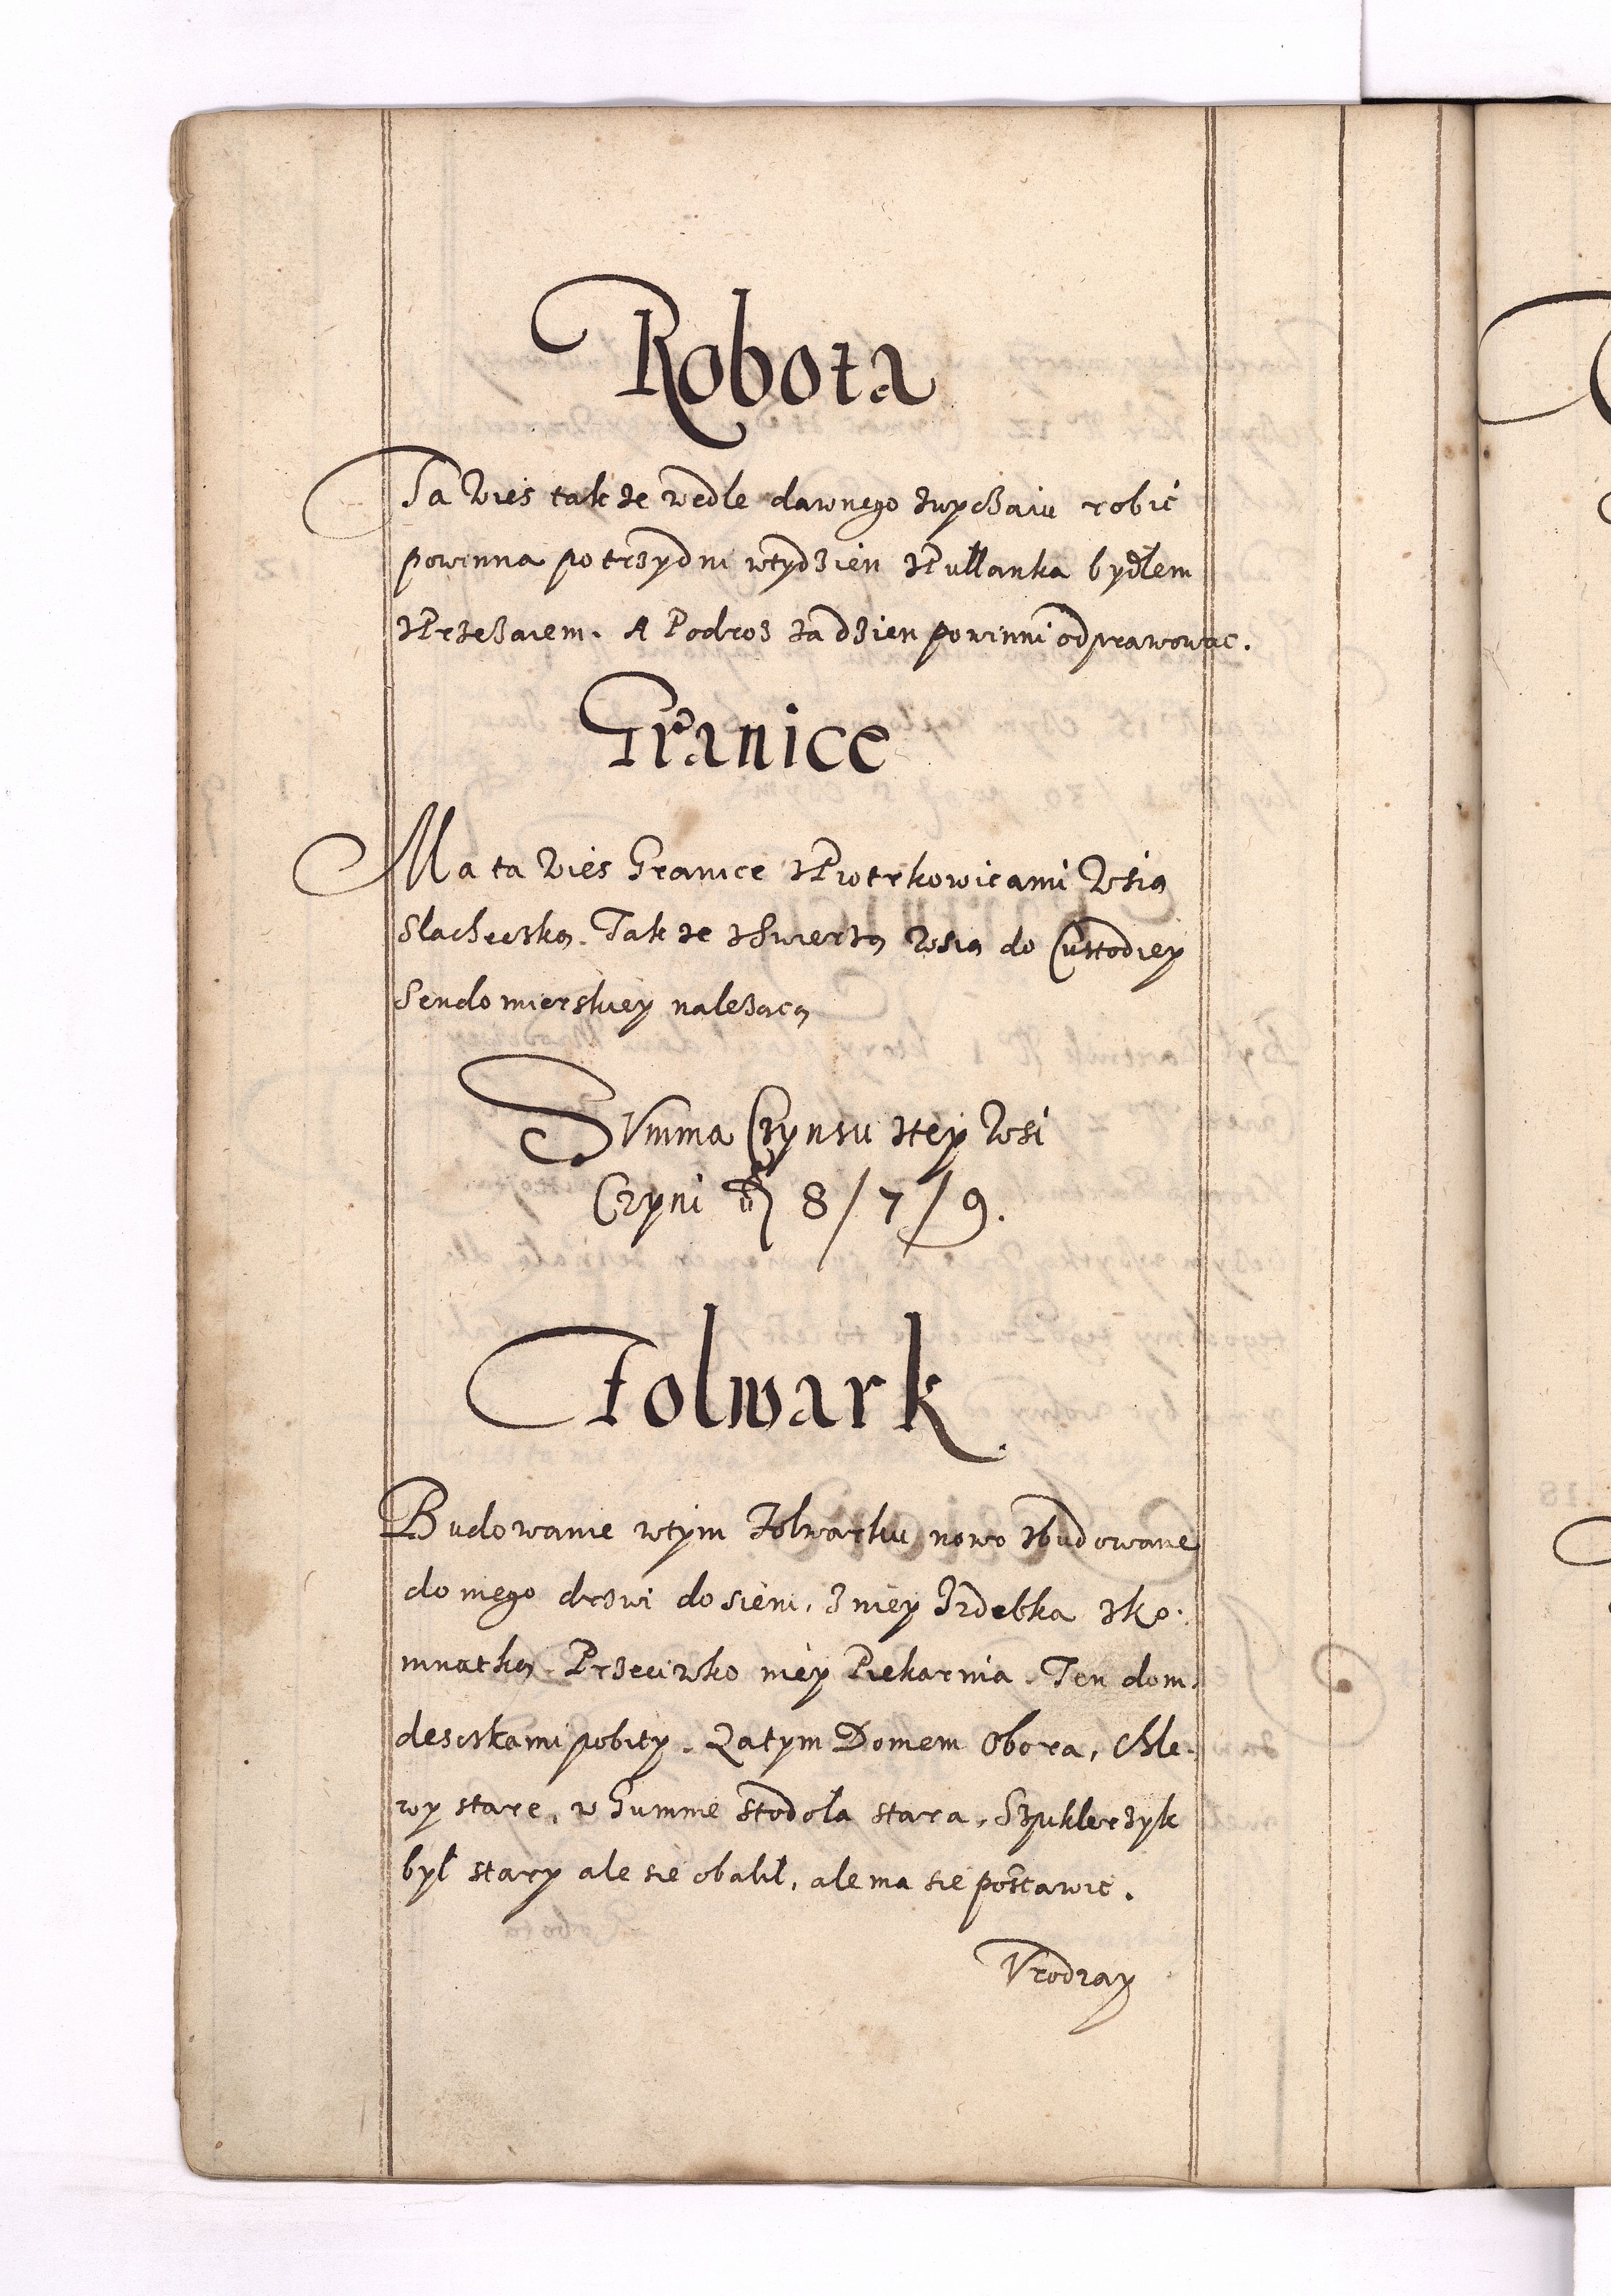 Robota
Ta Wies takze wedle dawnego zwyczaiu robić
powinna po trzy dni wtydzien zPułłanka bydłem
zPrzezaiem. A Podroz za dzien powinni odprawowac.
Granice
Ma ta Wies Granice zPiotrkowicami Wsią
Slachecką. Takze zSwierzą Wsią do Custodiey
Sendomierskiey nalezacą
SVmma Czynsu ztey Wsi
Czyni 8/7/9.
Folwark
Budowanie wtym Folwarku nowo zbudowane
do niego drzwi do sieni, z niey Izdebka zko.
mnatką. Przeciwko niey Piekarnia. Ten dom
desczkami pobity. Zatym Domem Obora, Chle.
wy stare, w Gumnie stodoła stara. Szpuklerzyk
był stary ale sie obalił, ale ma sie postawic.
Vrodzay